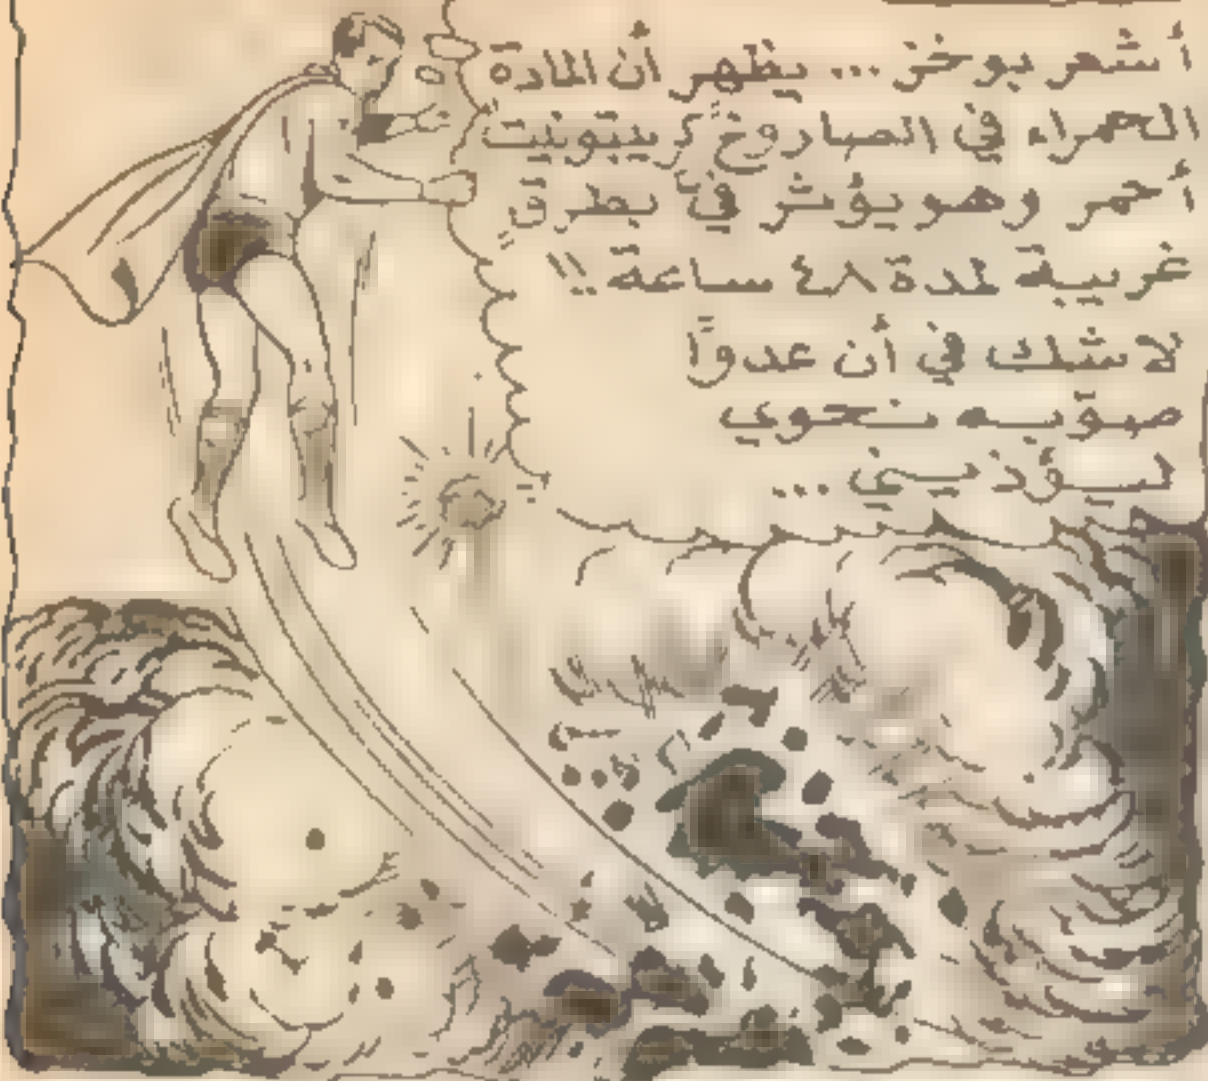 أشعر بوخز... يظهر أن المادة
الحمراء في الصاروخ كريبتونيت
أحمر وهو يؤثر فيّ بطرق
غريبة لمدة ٤٨ ساعة!!
لا شك في أن عدوًّا
صوّبه نحوي
ليؤذيني...